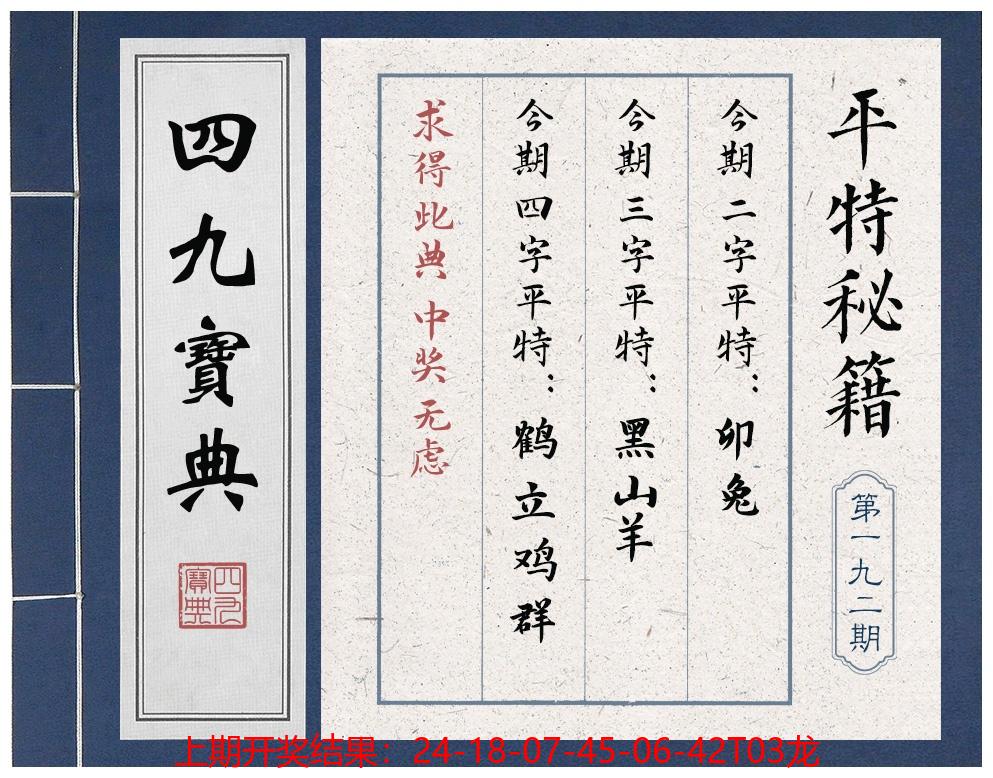 平特秘籍
第一九二期
今期二字平特：卯兔
今期三字平特：黑山羊
今期四字平特：鹤立鸡群
求得此典 中奖无虑
四九寶典
四九寶典
上期开奖结果：24-18-07-45-06-42T03龙